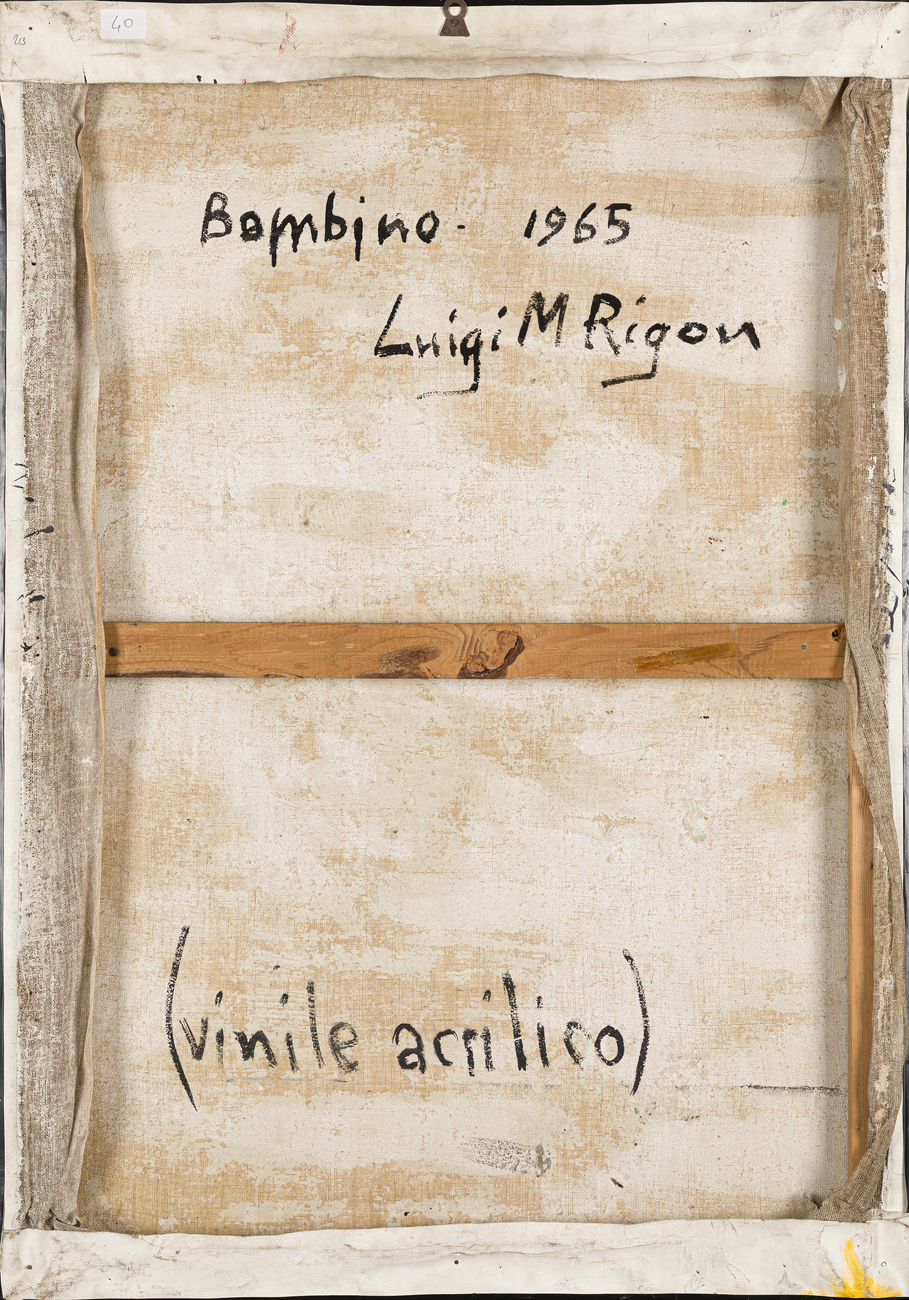 40
213
Bambino - 1965
Luigi M Rigon
(vinile acrilico)